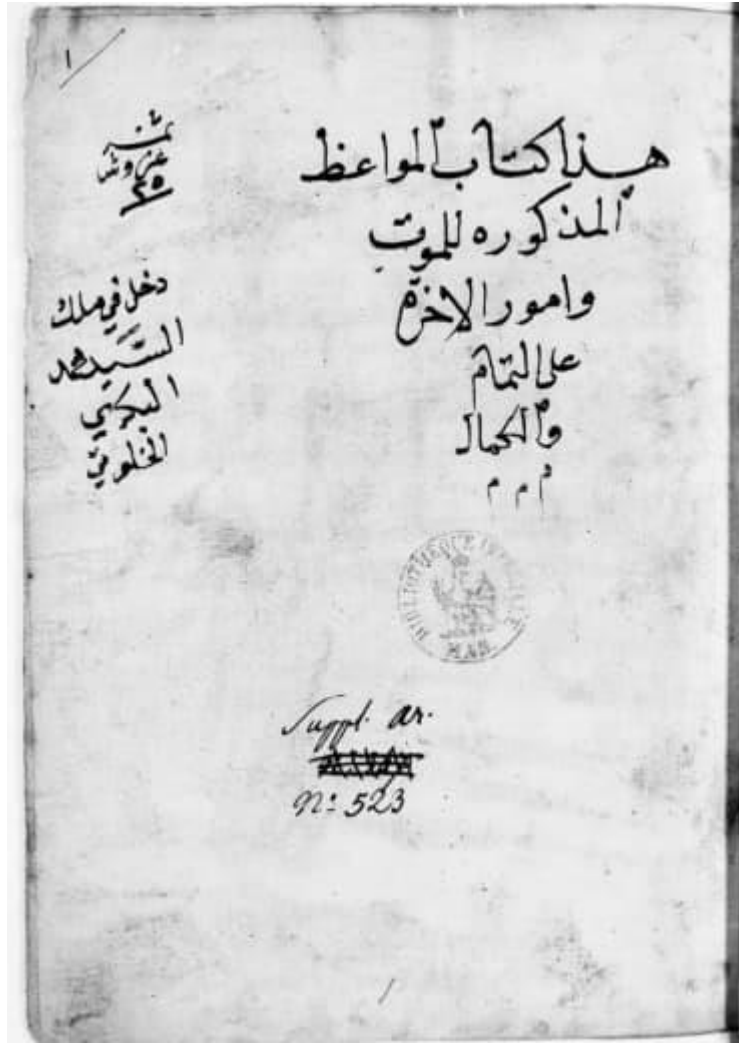 ١
هذا كتاب المواعظ
المذكوره للموت
وامور الاخرة
على التمام
والكمال
م م م
ثمنه
٣٥
دخل في ملك
السيد محمد
البكري
الخلوتي
BIBLIOTHEQUE IMPERIALE
MAN.
Suppl. ar.
Nº 523